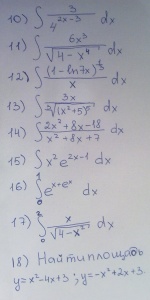 10) ∫ 3 / 4^(2x-3) dx
11) ∫ 6x³ / √(4 - x⁴) dx
12) ∫ (1 - ln7x)^(1/3) / x dx
13) ∫ 3x / ∛((x²+5)²) dx
14) ∫ (2x² + 8x - 18) / (x² + 8x + 7) dx
15) ∫ x² e^(2x-1) dx
16) ∫₀¹ e^(x+e^x) dx
17) ∫₀² x / √(4 - x²) dx
18) Найти площадь
y = x² - 4x + 3 ; y = -x² + 2x + 3.